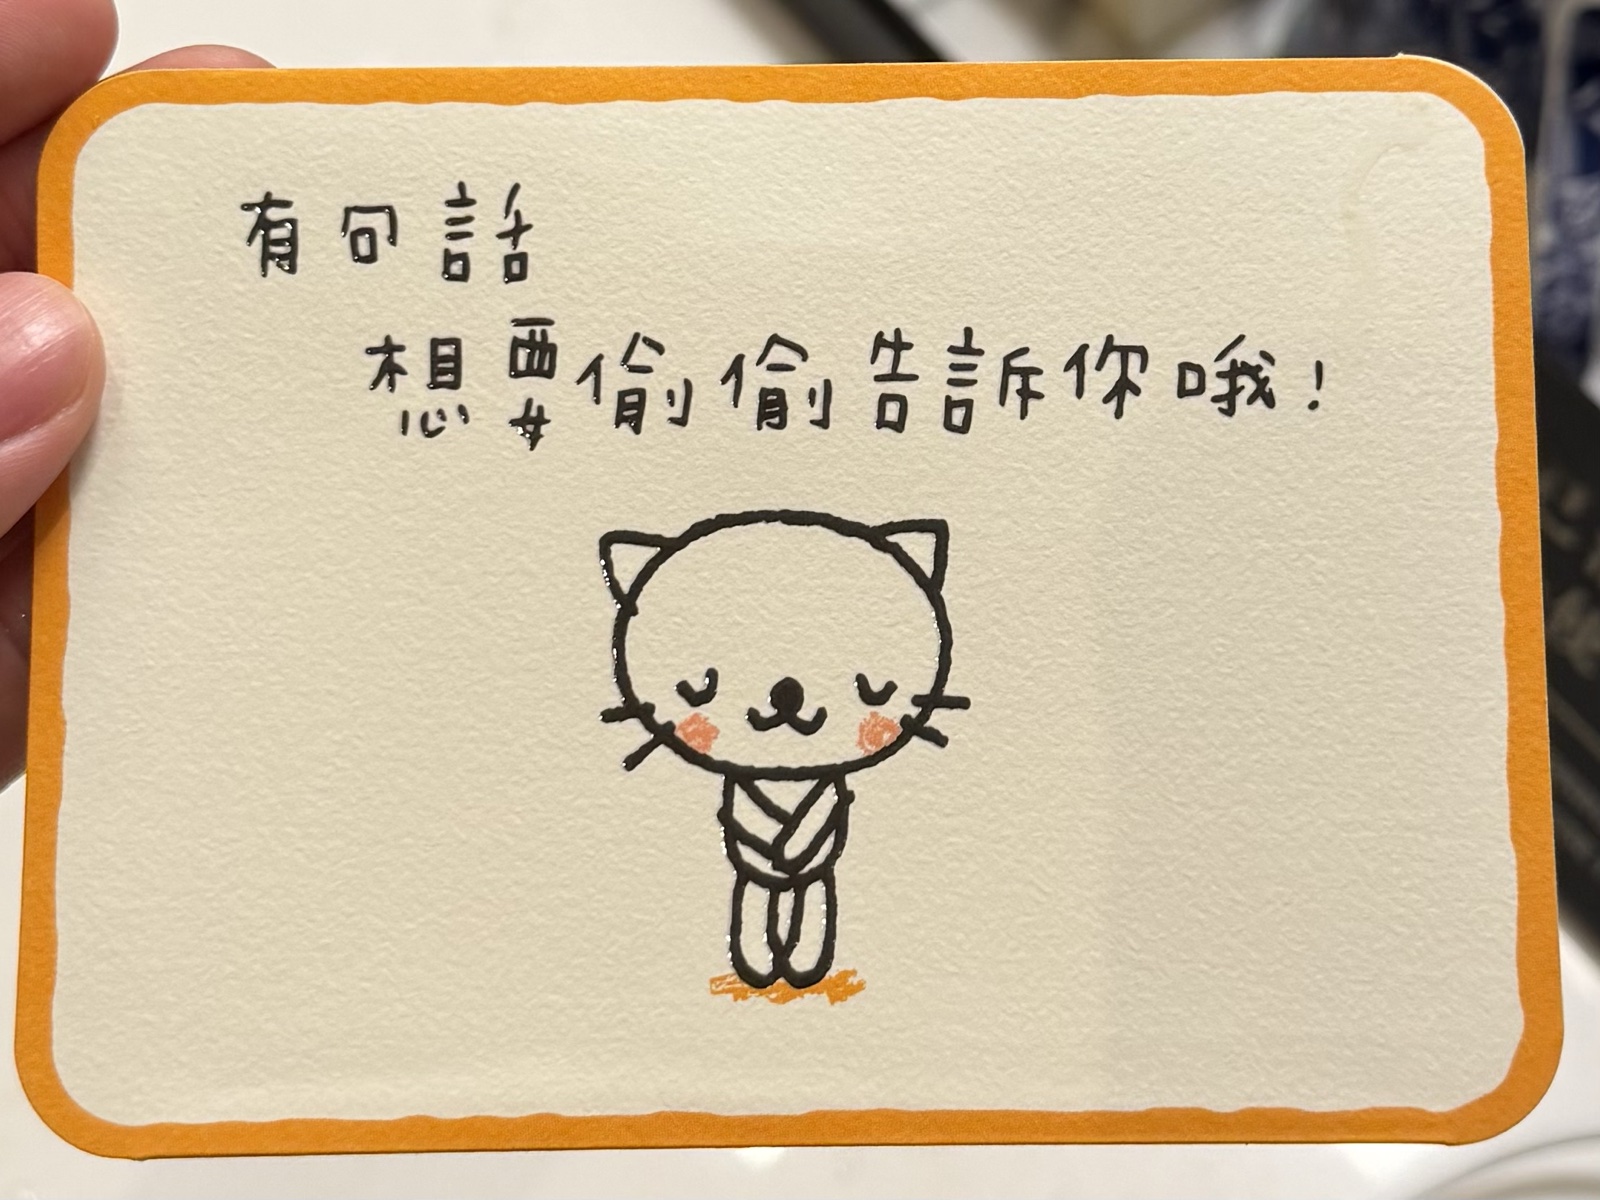 有句話
想要偷偷告訴你哦!